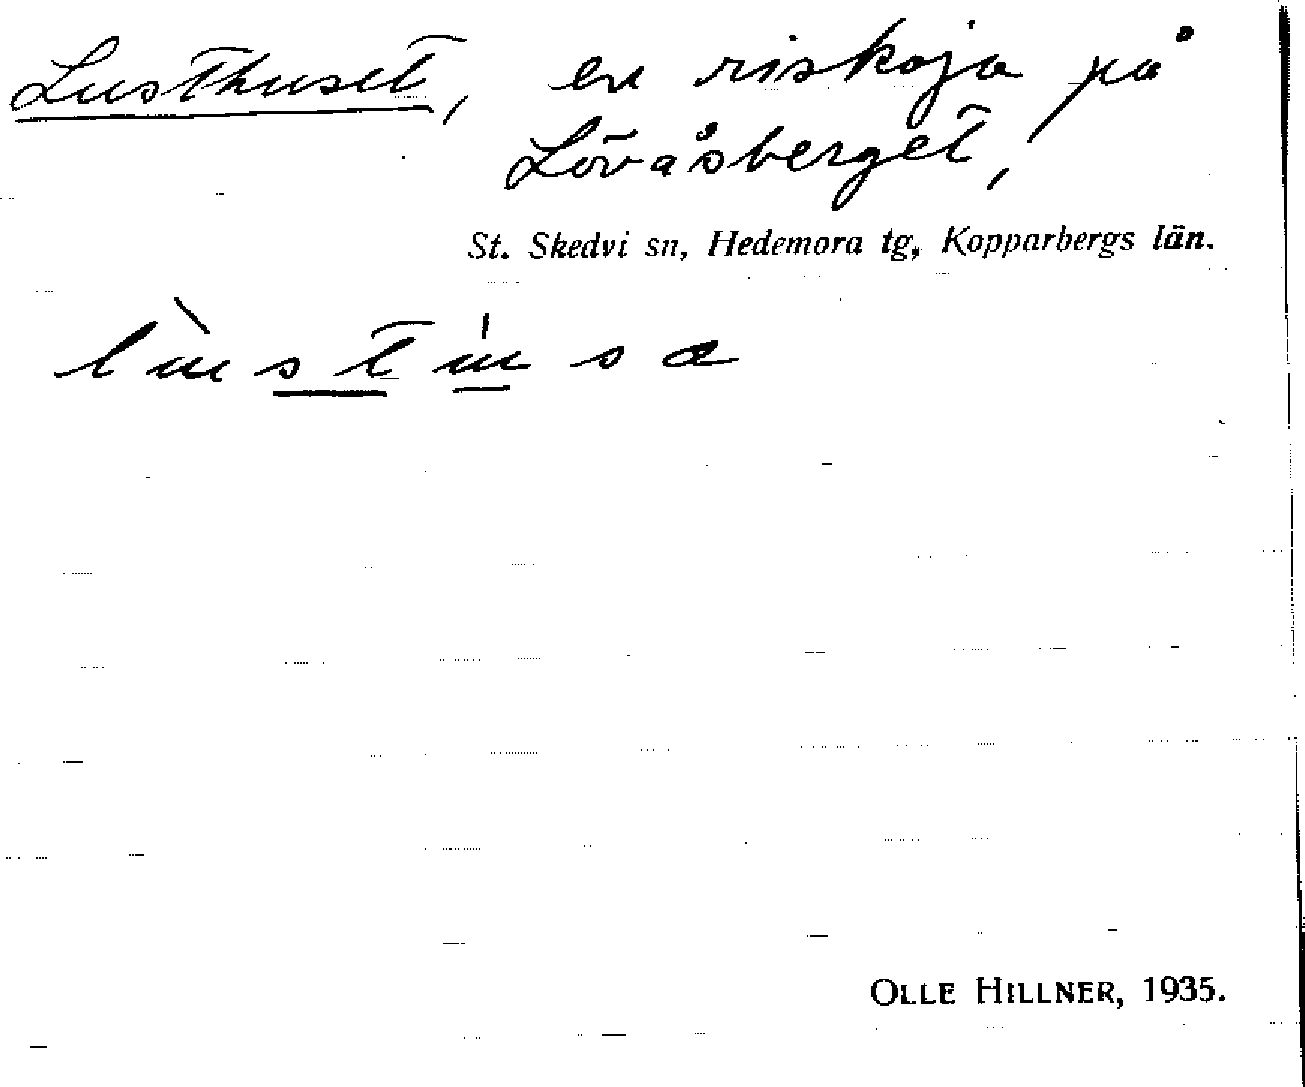 Lusthuset, en riskoja på
Lövåsberget,
St. Skedvi sn, Hedemora tg, Kopparbergs län.
OLLE HILLNER, 1935.